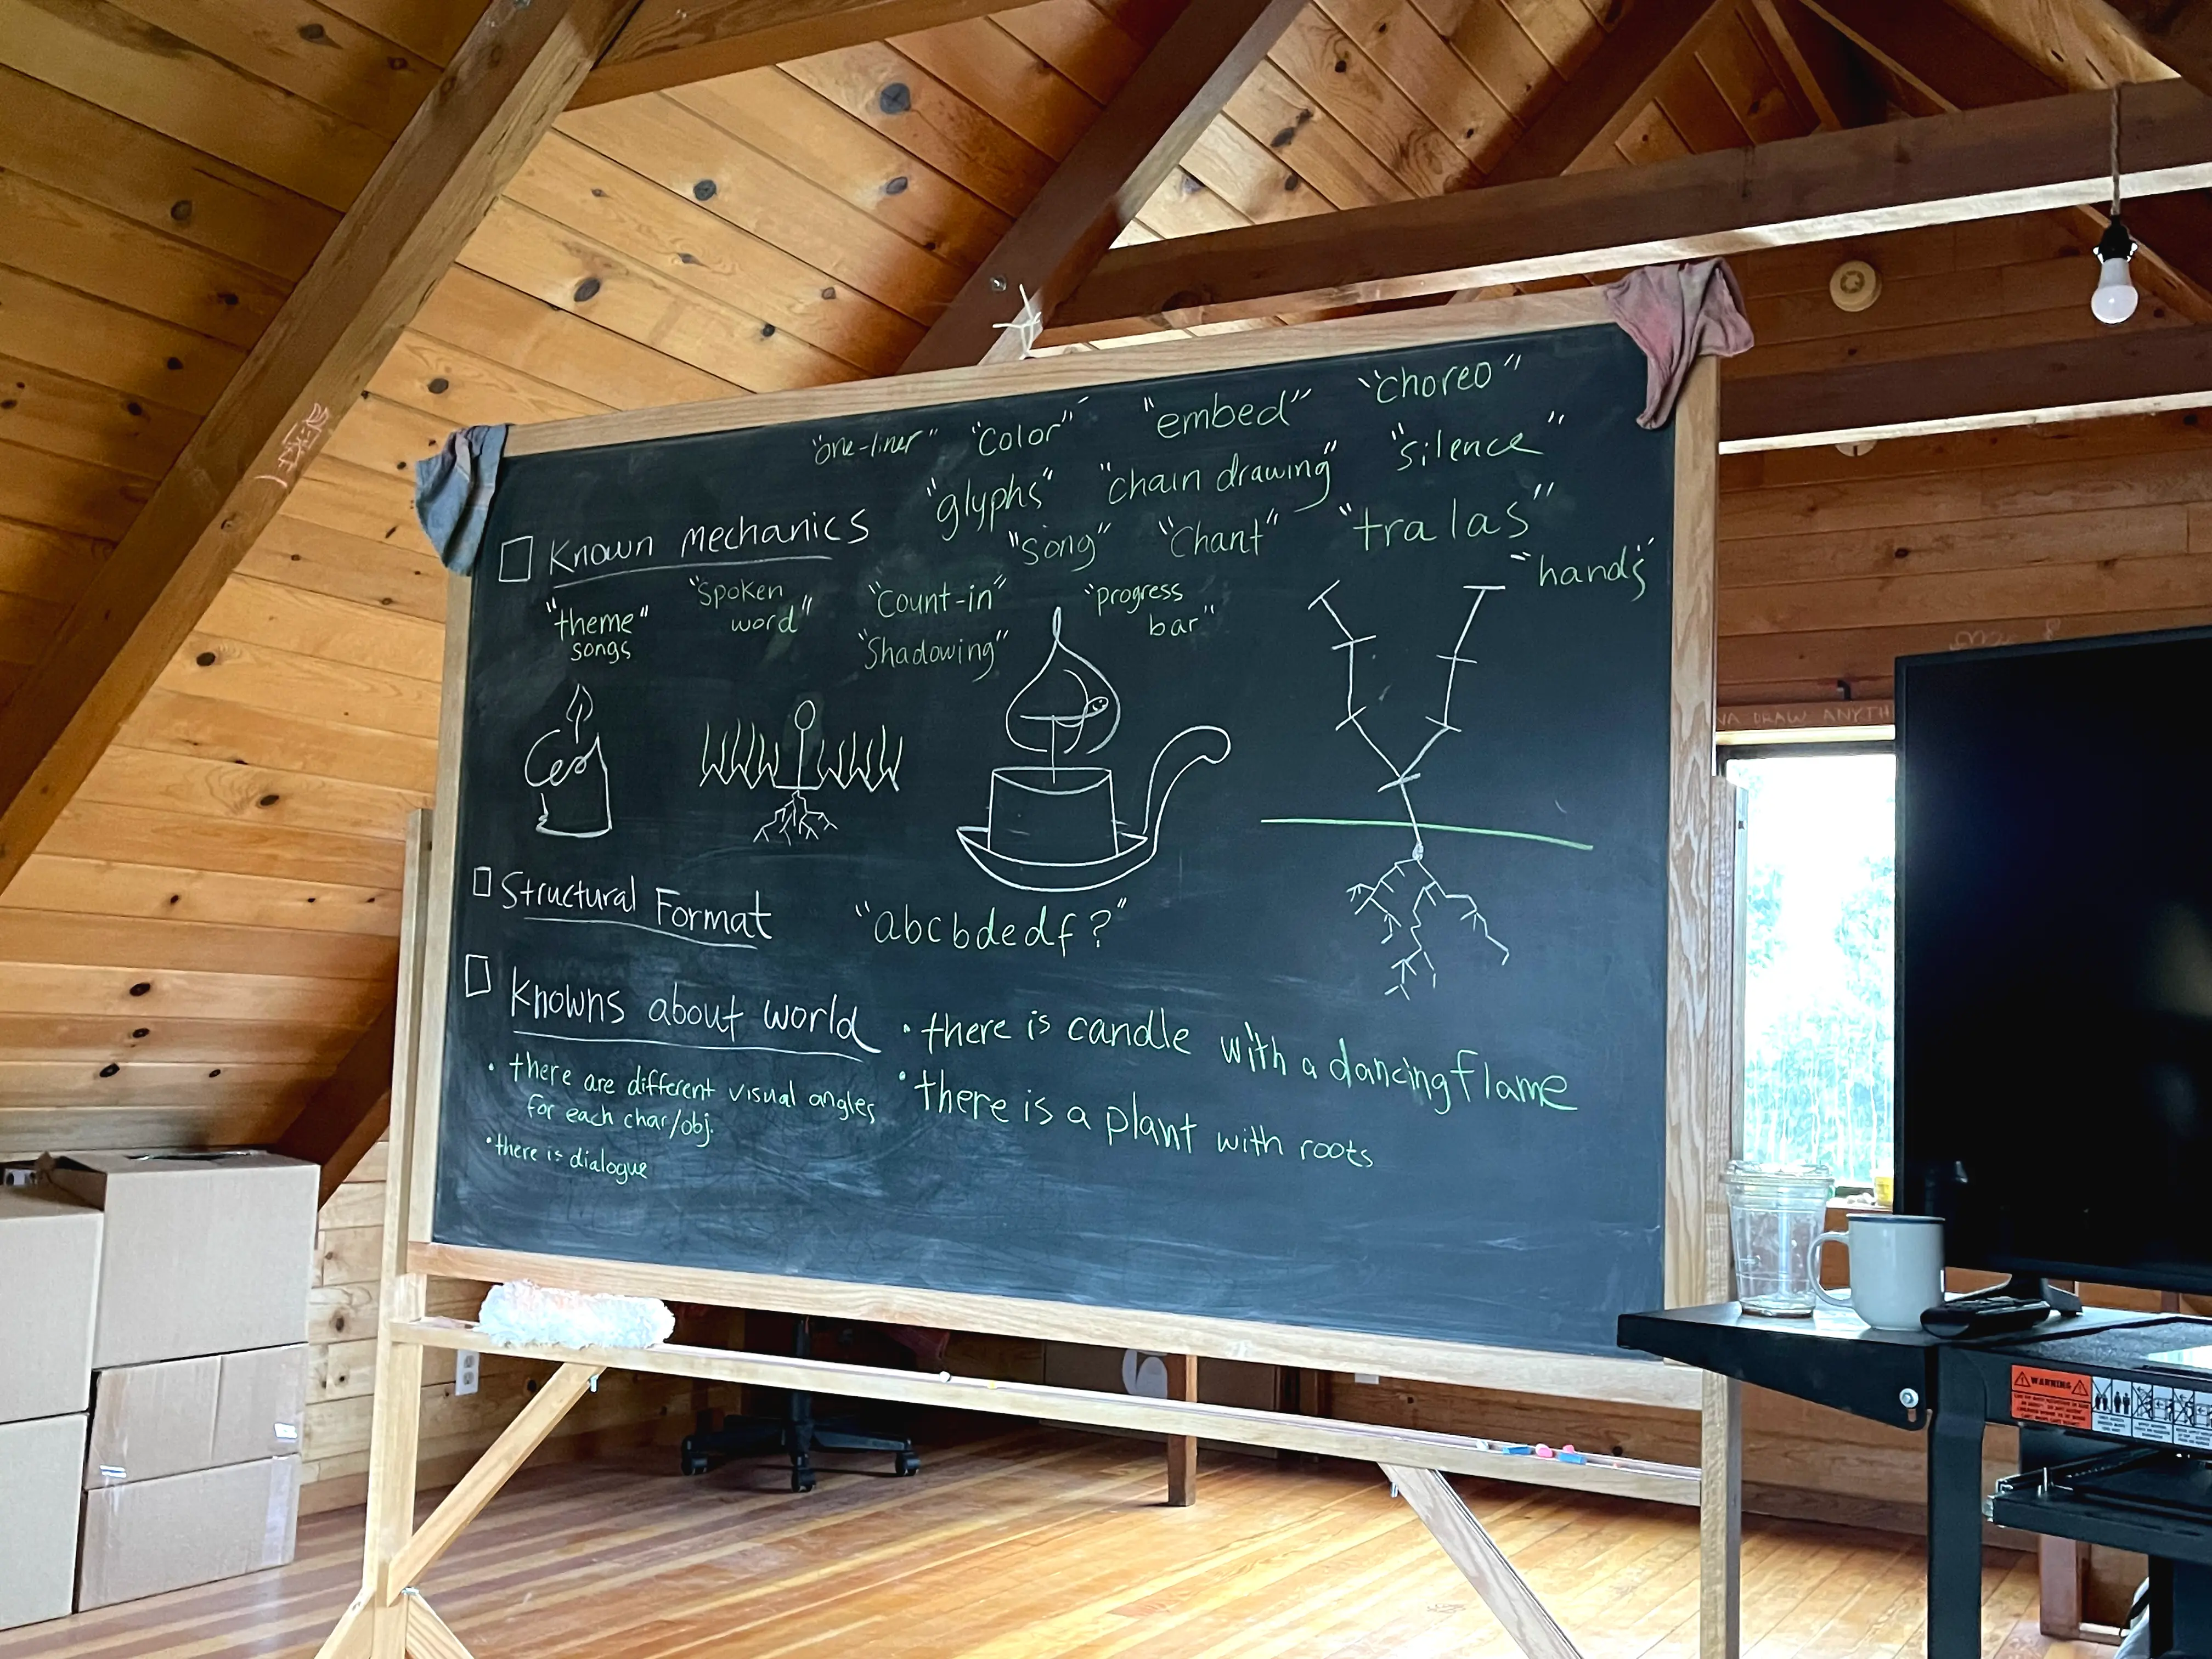 "one-liner" "color" "embed" "choreo"
"glyphs" "chain drawing" "silence"
"song" "Chant" "tra las"
"hands"
Known mechanics
"theme"
songs
"Spoken
word"
"Count-in"
"Shadowing"
"progress
bar"
Structural Format
"abcbdedf?"
Knowns about world
• there are different visual angles
for each char/obj.
• there is dialogue
• there is candle with a dancing flame
• there is a plant with roots
NA DRAW ANYTH
WARNING